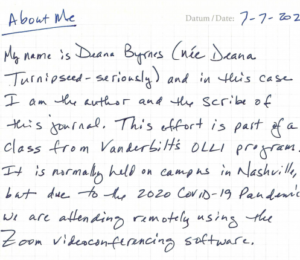 About Me
Datum / Date: 7-7-202
My name is Deana Byrnes (née Deana
Turnipseed - seriously) and in this case
I am the author and the scribe of
this journal. This effort is part of a
class from Vanderbilt's OLLI program.
It is normally held on campus in Nashville,
but due to the 2020 Covid-19 Pandemic
we are attending remotely using the
Zoom videoconferencing software.